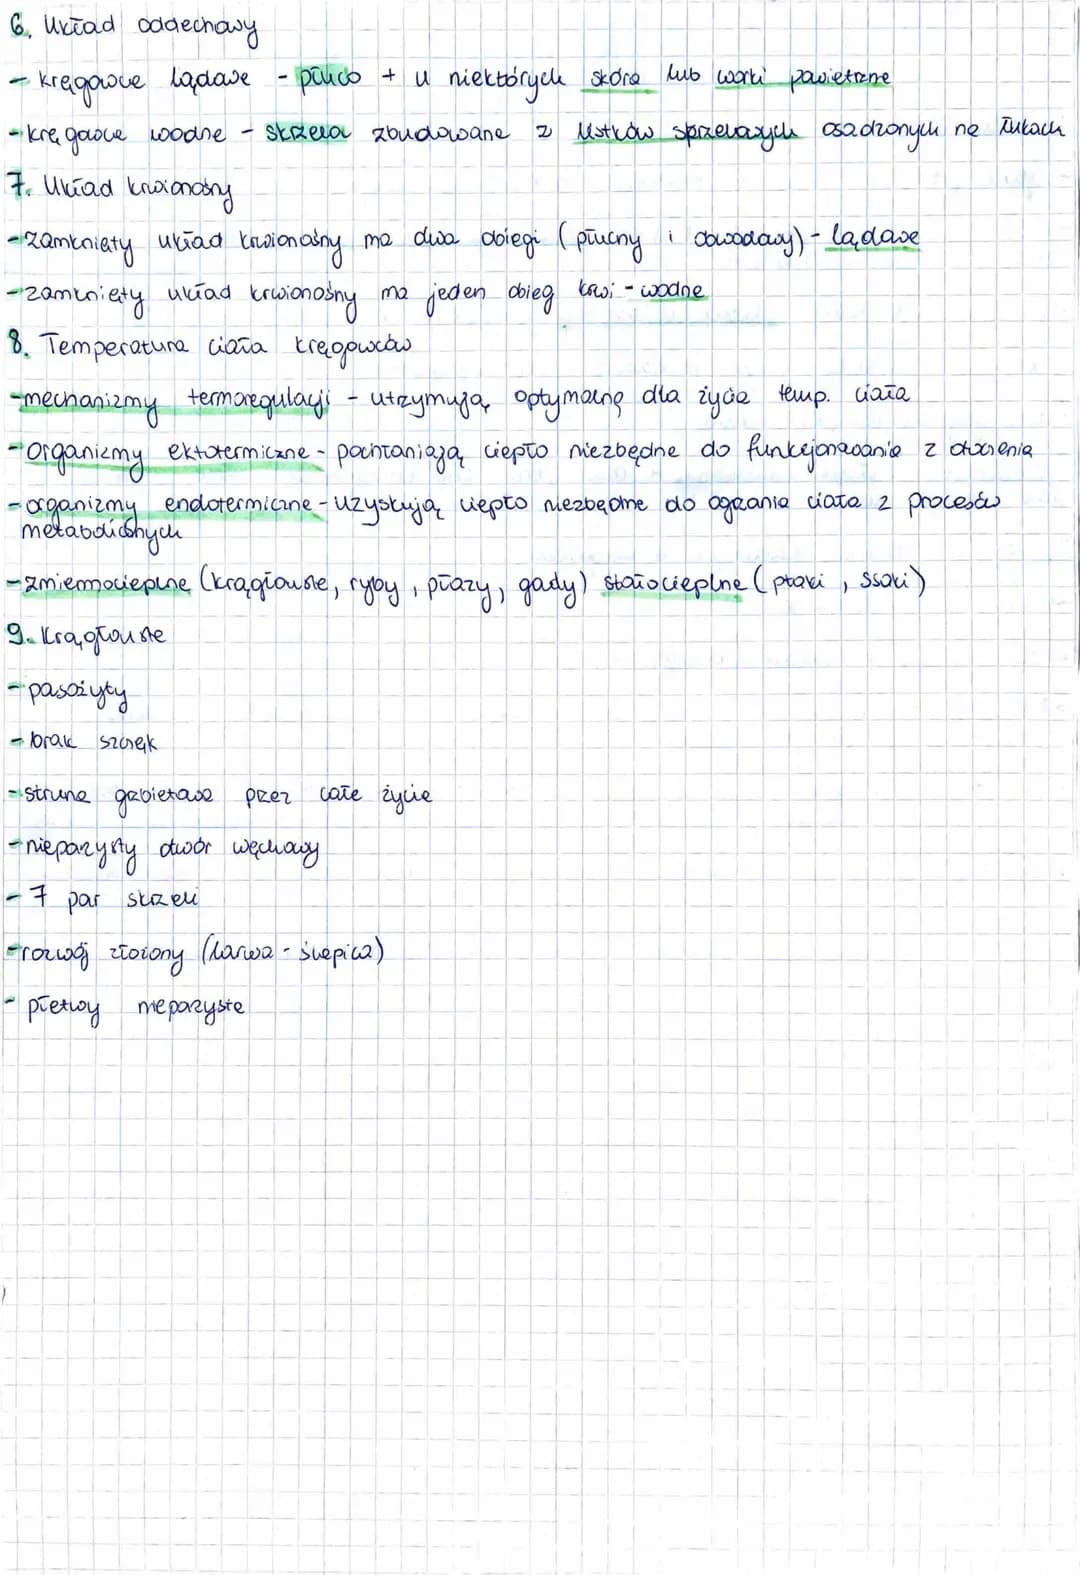 6. Układ oddechowy
- kręgowce lądowe - płuco + u niektórych skóra lub worki powietrzne
- kręgowce wodne - skrzela zbudowane z listków skrzelowych osadzonych na łukach
7. Układ krwionośny
- zamknięty układ krwionośny ma dwa obiegi (płucny i obwodowy) - lądowe
- zamknięty układ krwionośny ma jeden obieg krwi - wodne
8. Temperatura ciała kręgowców
- mechanizmy termoregulacji - utrzymują optymalną dla życia temp. ciała
- organizmy ektotermiczne - pochłaniają ciepło niezbędne do funkcjonowania z otoczenia
- organizmy endotermiczne - uzyskują ciepło niezbędne do ogrzania ciała z procesów
metabolicznych
- zmiennocieplne (krągłouste, ryby, płazy, gady) stałocieplne (ptaki, ssaki)
9. Krągłouste
- pasożyty
- brak szczęk
- struna grzbietowa przez całe życie
- nieparzysty otwór węchowy
- 7 par skrzeli
- rozwój złożony (larwa - ślepica)
- płetwy nieparzyste